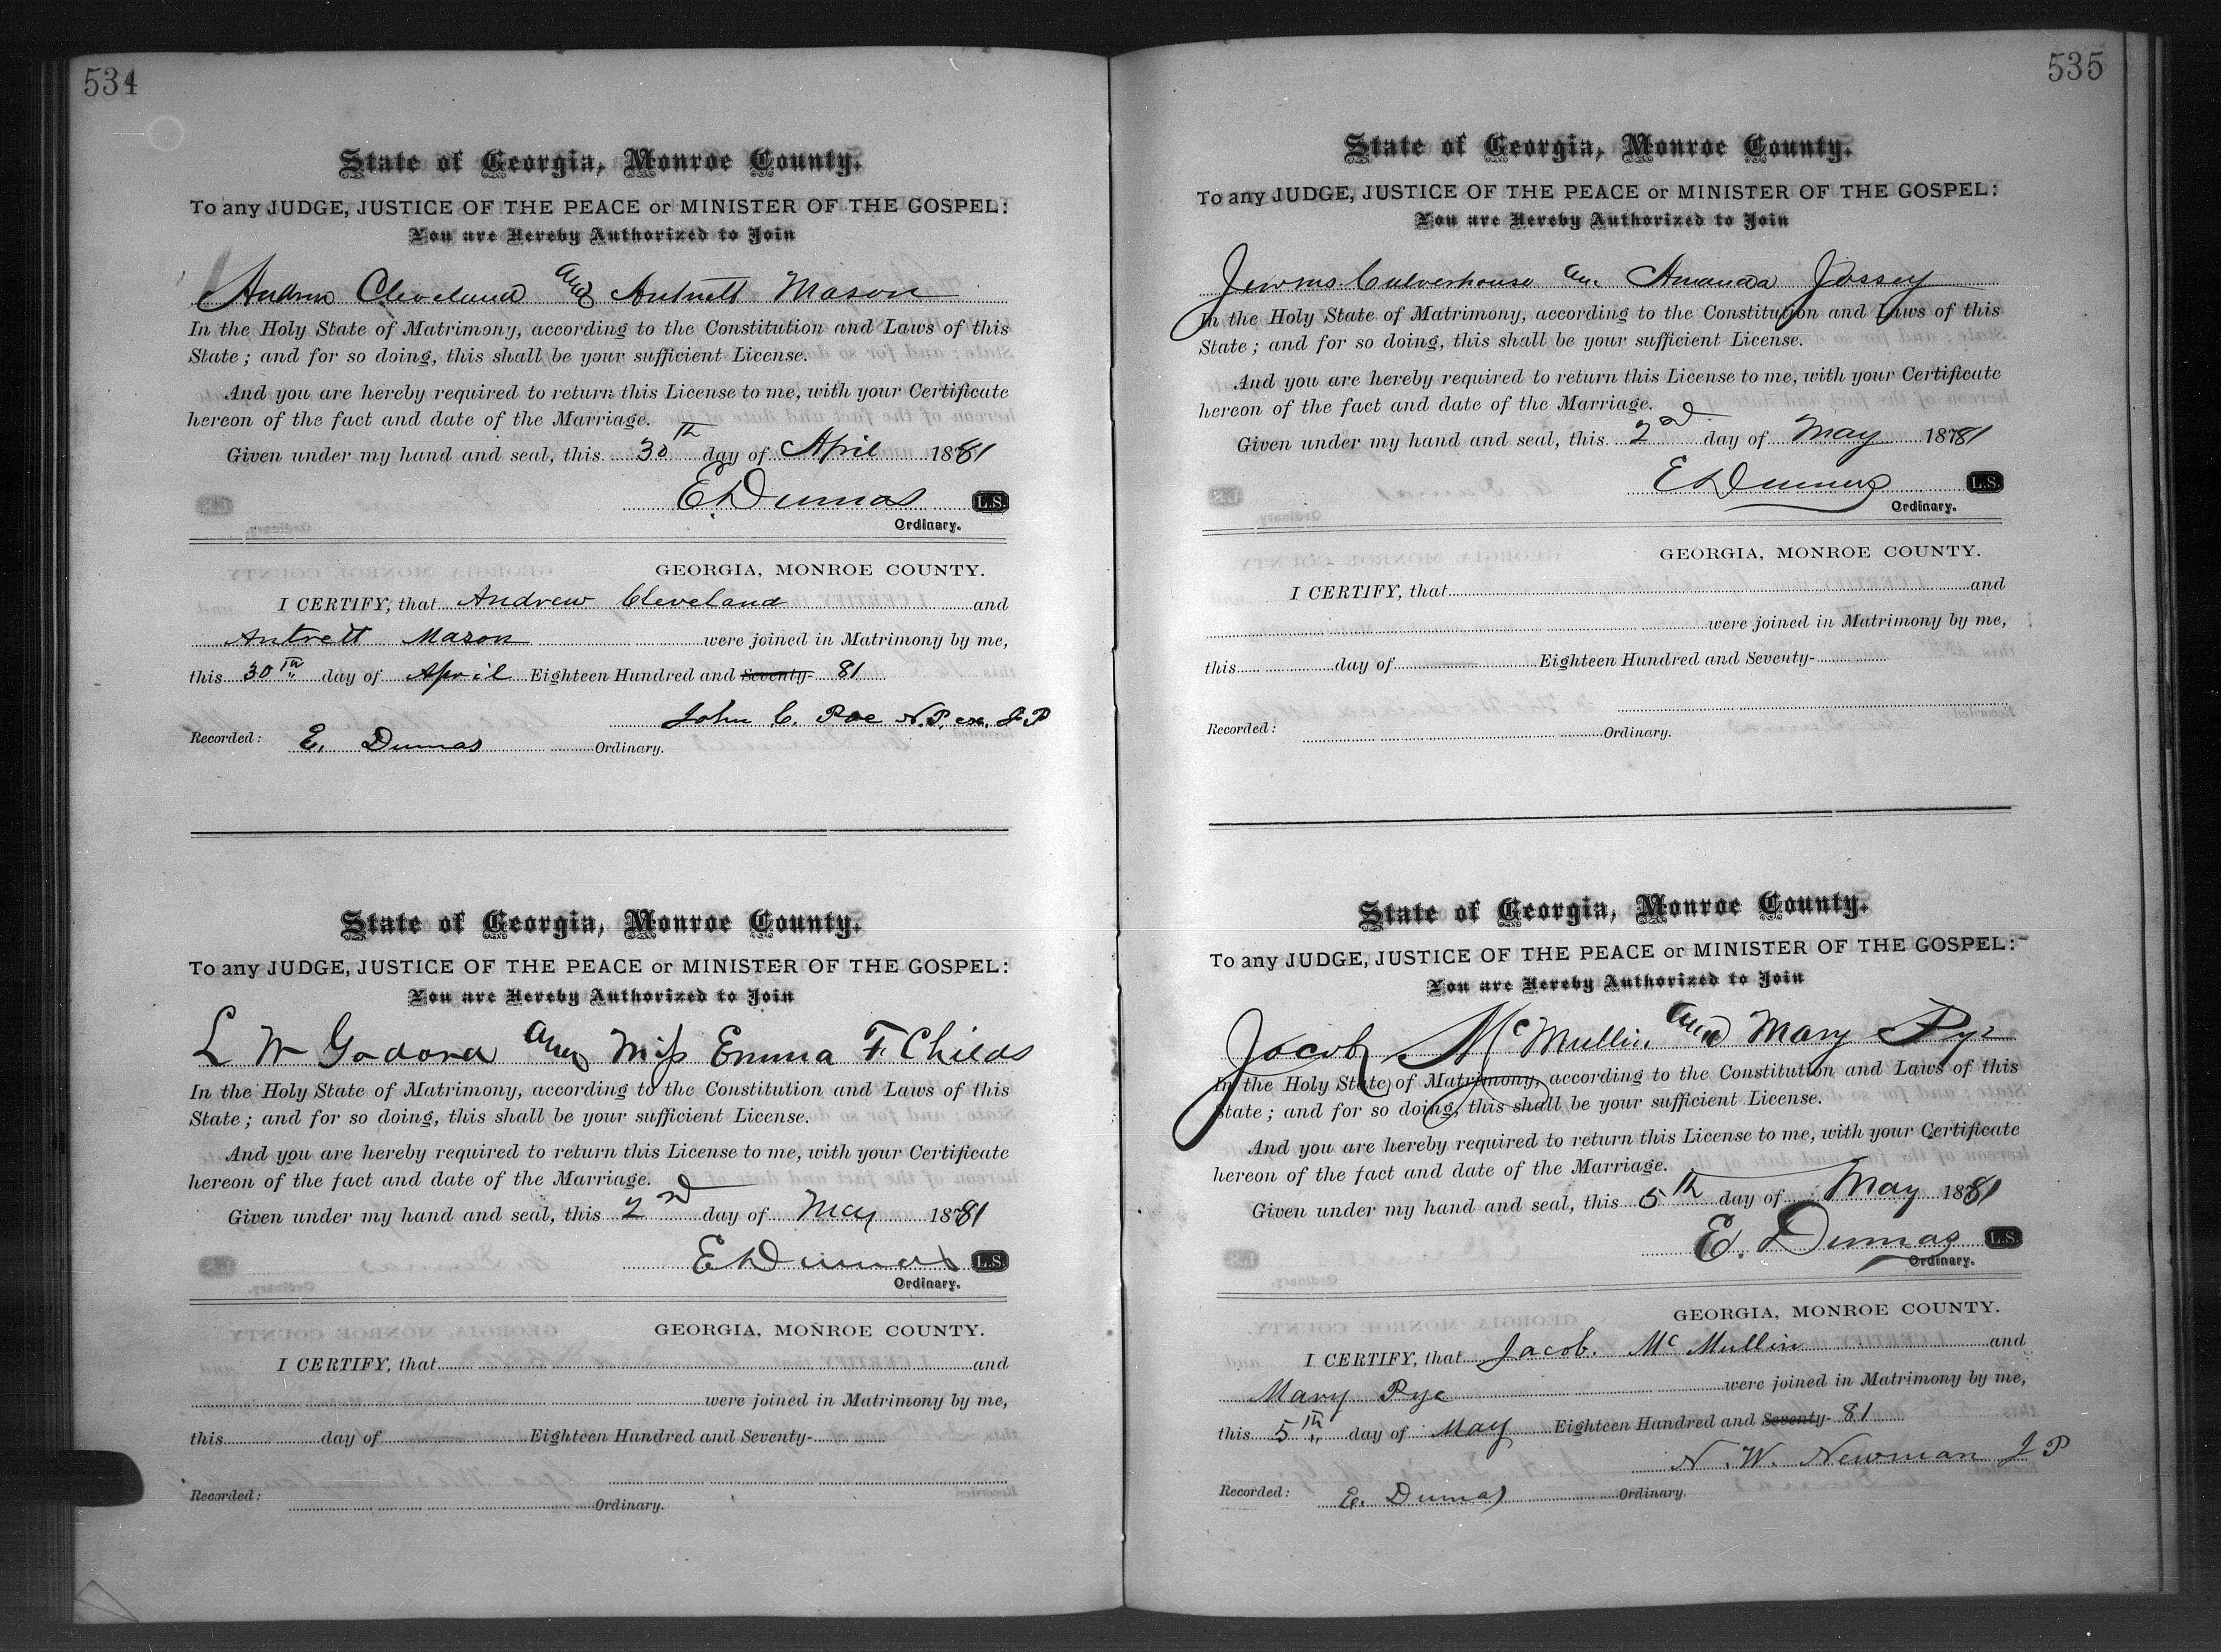 534
State of Georgia, Monroe County.
To any JUDGE, JUSTICE OF THE PEACE or MINISTER OF THE GOSPEL:
You are Hereby Authorized to Join
Andrew Cleveland and Antnett Mason
In the Holy State of Matrimony, according to the Constitution and Laws of this
State; and for so doing, this shall be your sufficient License.
And you are hereby required to return this License to me, with your Certificate
hereon of the fact and date of the Marriage.
Given under my hand and seal, this 30th day of April 1881
E. Dumas L.S.
Ordinary.
GEORGIA, MONROE COUNTY.
I CERTIFY, that Andrew Cleveland and
Antnett Mason were joined in Matrimony by me,
this 30th day of April Eighteen Hundred and Seventy- 81
John C. Poe N.P. ex. J P
Recorded: E. Dumas Ordinary.
State of Georgia, Monroe County.
To any JUDGE, JUSTICE OF THE PEACE or MINISTER OF THE GOSPEL:
You are Hereby Authorized to Join
L W and Miss Emma F. Childs
In the Holy State of Matrimony, according to the Constitution and Laws of this
State; and for so doing, this shall be your sufficient License.
And you are hereby required to return this License to me, with your Certificate
hereon of the fact and date of the Marriage.
Given under my hand and seal, this 2nd day of May 1881
E Dumas L.S.
Ordinary.
GEORGIA, MONROE COUNTY.
I CERTIFY, that and
were joined in Matrimony by me,
this day of Eighteen Hundred and Seventy-
Recorded: Ordinary.
535
State of Georgia, Monroe County.
To any JUDGE, JUSTICE OF THE PEACE or MINISTER OF THE GOSPEL:
You are Hereby Authorized to Join
Culverhouse an Amanda Jossey
In the Holy State of Matrimony, according to the Constitution and Laws of this
State; and for so doing, this shall be your sufficient License.
And you are hereby required to return this License to me, with your Certificate
hereon of the fact and date of the Marriage.
Given under my hand and seal, this 2nd day of May 1881
E Dumas L.S.
Ordinary.
GEORGIA, MONROE COUNTY.
I CERTIFY, that and
were joined in Matrimony by me,
this day of Eighteen Hundred and Seventy-
Recorded: Ordinary.
State of Georgia, Monroe County.
To any JUDGE, JUSTICE OF THE PEACE or MINISTER OF THE GOSPEL:
You are Hereby Authorized to Join
Jacob McMullin and Mary Pye
In the Holy State of Matrimony, according to the Constitution and Laws of this
State; and for so doing, this shall be your sufficient License.
And you are hereby required to return this License to me, with your Certificate
hereon of the fact and date of the Marriage.
Given under my hand and seal, this 5th day of May 1881
E. Dumas L.S.
Ordinary.
GEORGIA, MONROE COUNTY.
I CERTIFY, that Jacob. Mc Mullin and
Mary Pye were joined in Matrimony by me,
this 5th day of May Eighteen Hundred and Seventy- 81
N. W. Newman J P
Recorded: E. Dumas Ordinary.